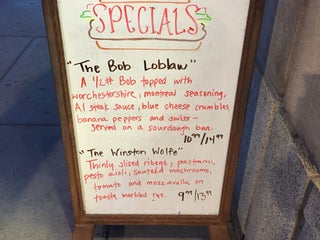 SPECIALS
"The Bob Loblaw"
A 1/2 lb Bob topped with
worchestershire, montreal seasoning,
A1 steak sauce, blue cheese crumbles,
banana peppers and swiss -
served on a sourdough bun.
10.99/14.99
"The Winston Wolfe"
Thinly sliced ribeye, pastrami,
pesto aioli, sautéed mushrooms,
tomato and mozzarella on
toasty marbled rye. 9.99/13.99